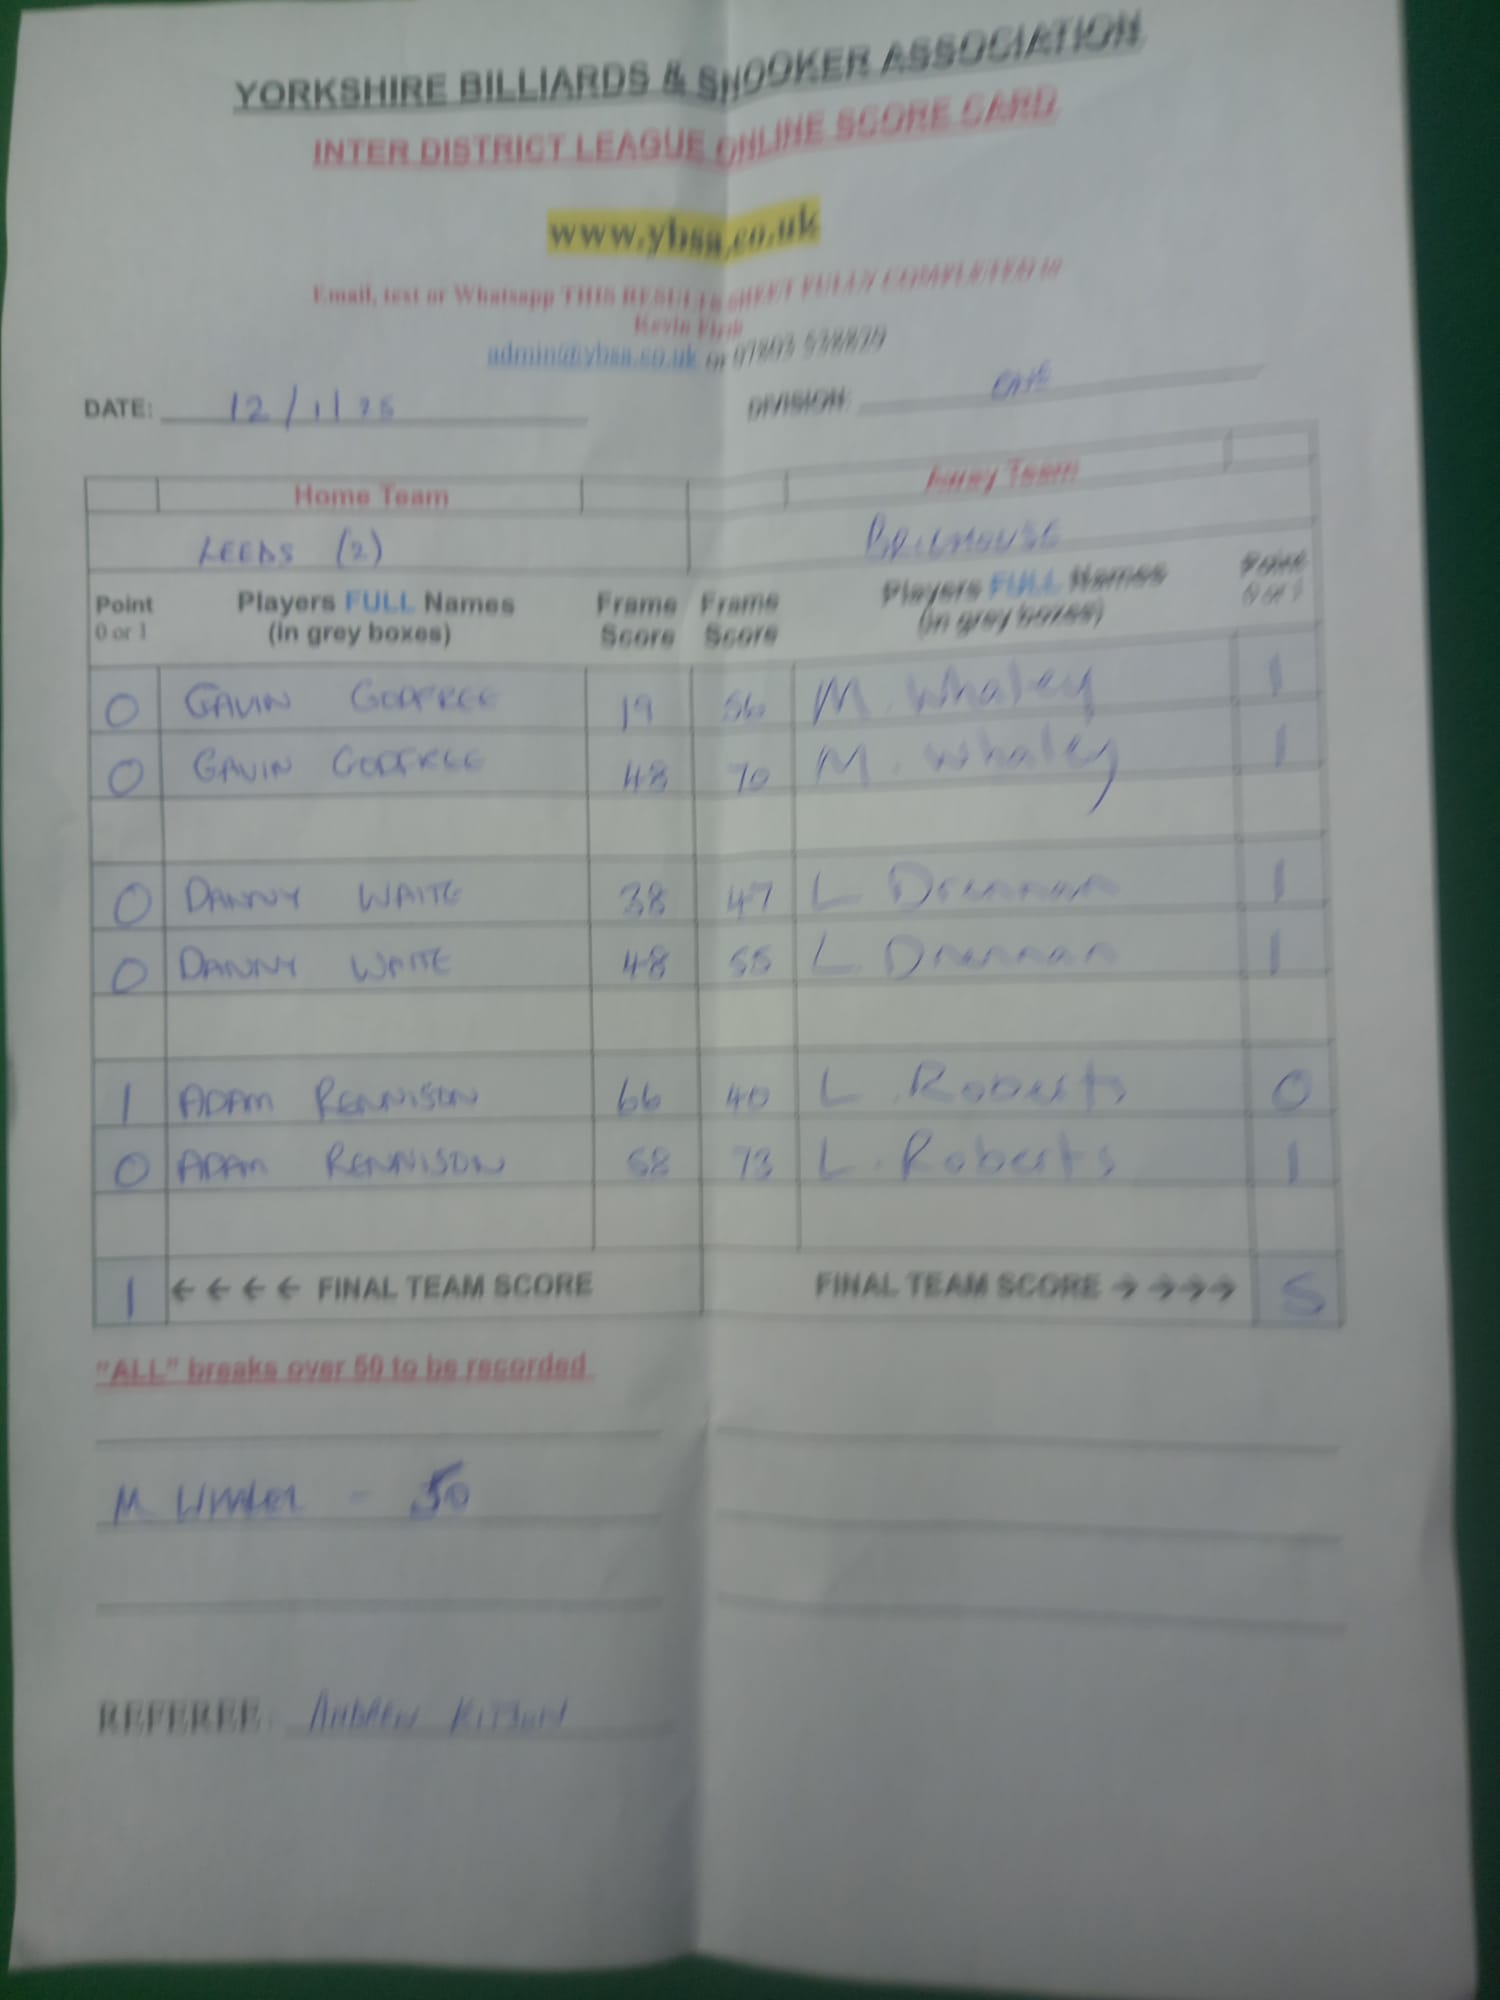 YORKSHIRE BILLIARDS & SNOOKER ASSOCIATION
INTER DISTRICT LEAGUE ONLINE SCORE CARD
www.ybsa.co.uk
Email, text or Whatsapp THIS RESULTS SHEET FULLY COMPLETED to
Kevin
admin@ybsa.co.uk or
DATE: 12/1/25 DIVISION: ONE
Home Team Away Team
LEEDS (2) BRIGHOUSE
Point 0 or 1 Players FULL Names (in grey boxes) Frame Score Frame Score Players FULL Names (in grey boxes) Point 0 or 1
0 GAVIN GODFREE 19 56 M. Whaley 1
0 GAVIN GODFREE 48 70 M. Whaley 1
0 DANNY WAITE 38 47 L Drennan 1
0 DANNY WAITE 48 55 L. Drennan 1
1 ADAM RENNISON 66 40 L. Roberts 0
0 ADAM RENNISON 58 73 L. Roberts 1
1 ←←←← FINAL TEAM SCORE FINAL TEAM SCORE →→→→ 5
"ALL" breaks over 50 to be recorded
M - 50
REFEREE: ANDREW